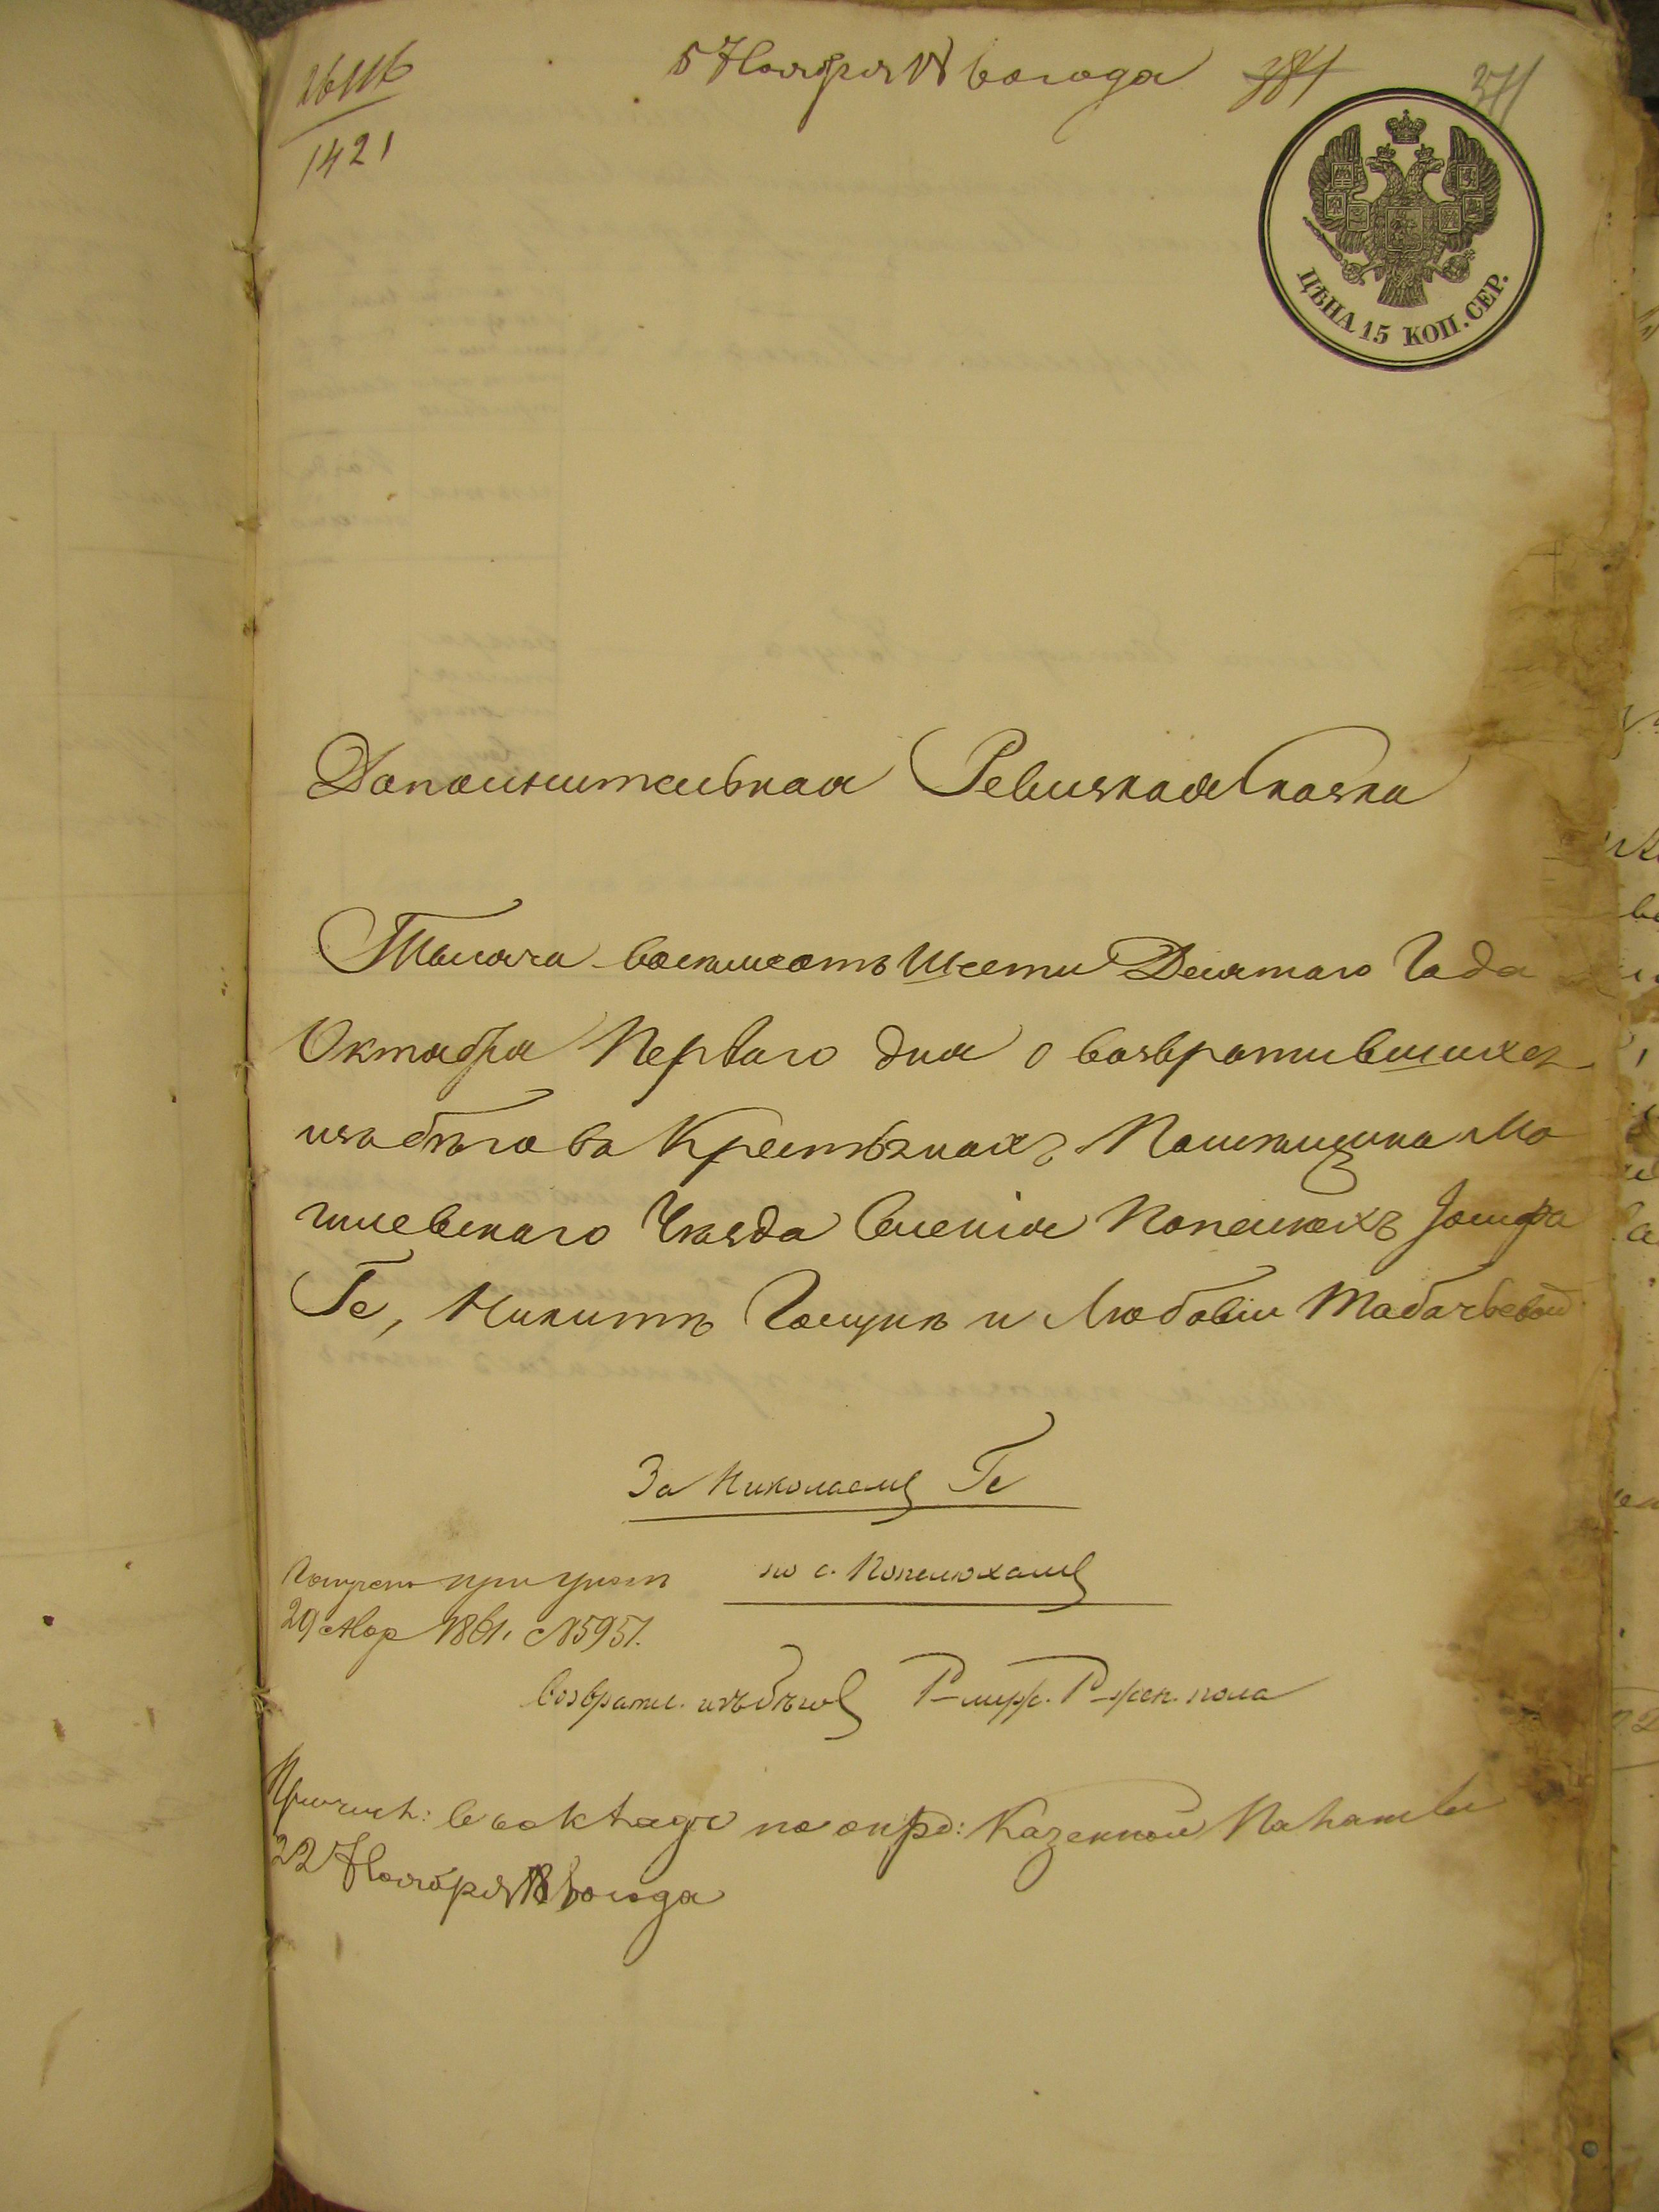 5 Ноября 1860 года 384 371
1421
ЦѢНА 15 КОП. СЕР.
Дополнительная Ревизкая Сказка
Тысяча восемсотъ Шести Десятаго Года
Октября Перваго дня о возвратившихся
изъ бѣгова Крестьянахъ Помѣщика Мо
гилевскаго Уезда Селенія Попелюхъ Іосифа
Ге, Никитѣ Гоцуки и Любовіи Табачьевой
За Николаемъ Ге
по с. Попелюхамъ
Получено при указѣ
29 Мар 1861. N5957.
Возвратил. изъ бѣговъ 1 - муж. 1 - жен. пола
Причисл: въ окладъ по опред: Казенной Палаты
22 Ноября 1860 года